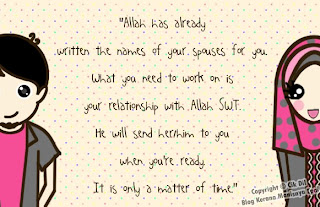 "Allah has already
written the names of your spouses for you.
What you need to work on is
your relationship with Allah SWT.
He will send her/him to you
when you're ready.
It is only a matter of time."
Copyright © Cik Pil
Blog Kerana Manisnya